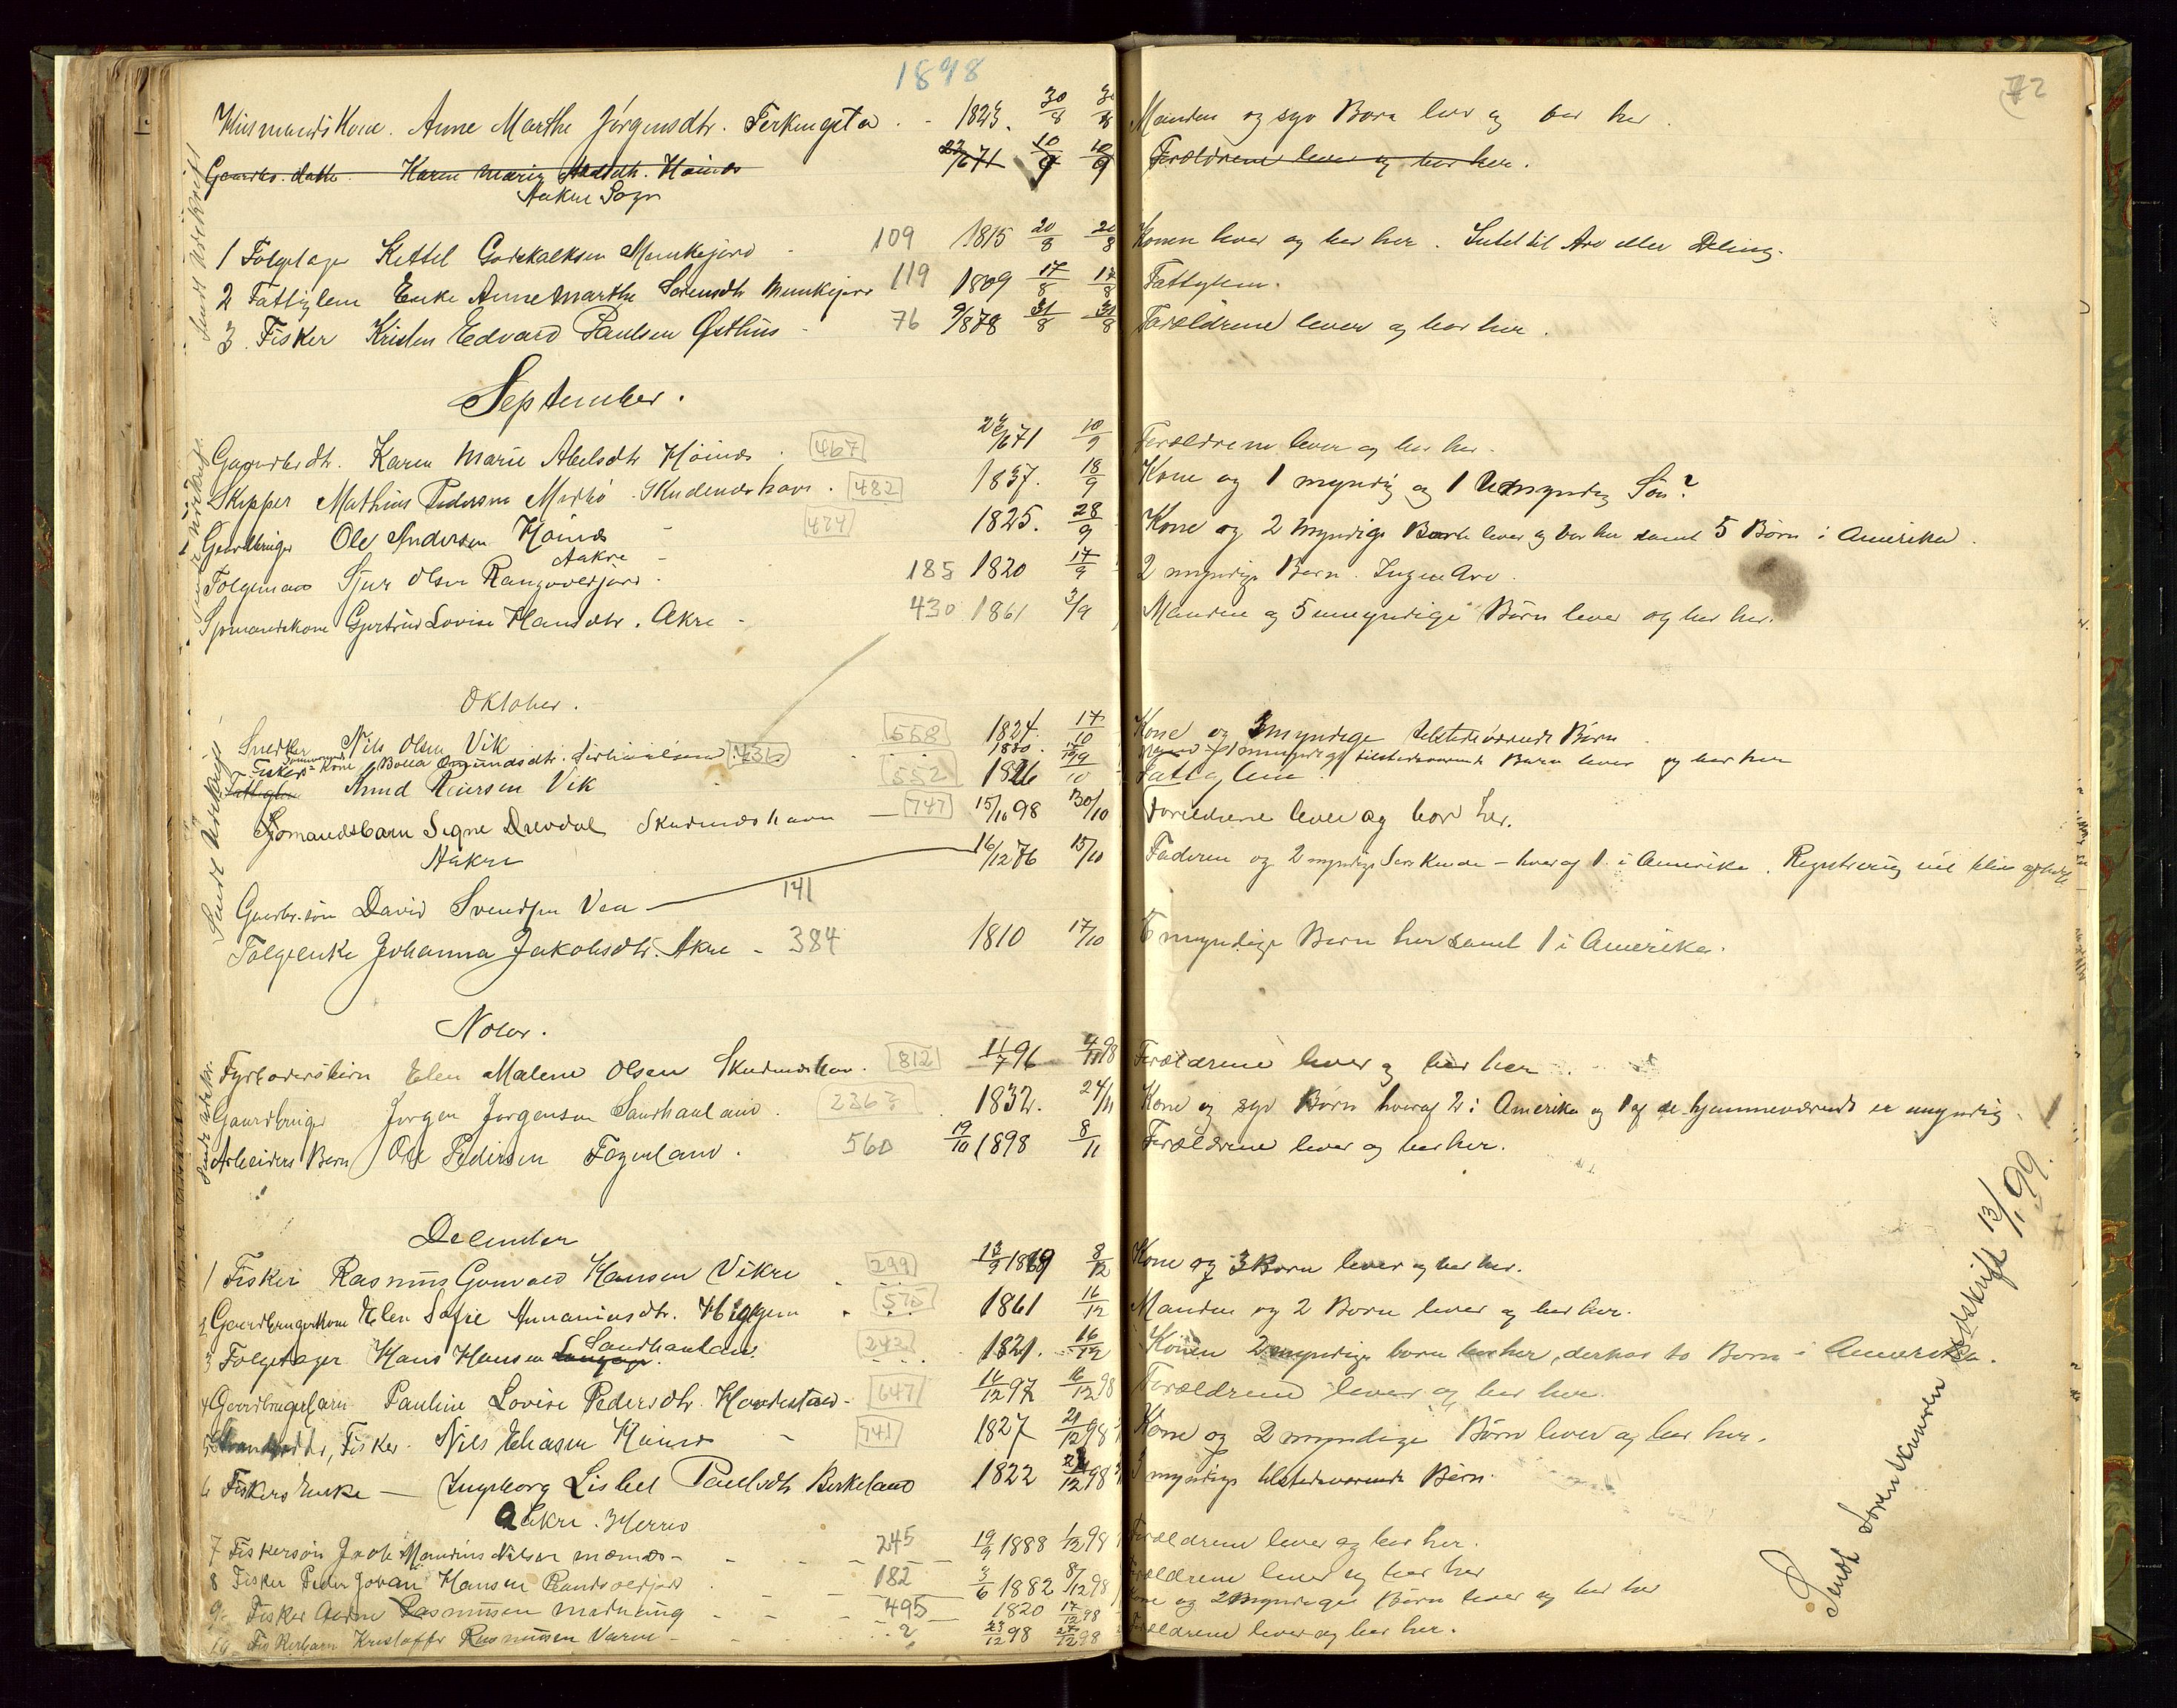 1898
72
Husmandskone. Anne Marthe Jörgensdtr. Ferkingstad - 1823. 30/8 30/8 Manden og syv Born lever og bor her.
Gaardbr. datter Karen Marie Abelsdtr. Höines 22/6 71 10/9 10/9 Forældrene lever og bor her.
Aakre Sogn
1 Folgetager Kettel Godskalksen Munkejord - 109 1815 20/8 20/8 Konen lever og bor her. Intet til Arv eller Deling.
2 Fattiglem Enke Anne Marthe Sorensdtr Munkejord 119 1809 17/8 17/8 Fattiglem.
3 Fisker Kristen Edvard Paulsen Østhus - 76 9/8 78 31/8 31/8 Forældrene lever og bor her.
September.
Gaardbrdtr. Karen Marie Abelsdtr Höines. 467 22/6 71 10/9 Forældrene lever og bor her.
Skipper Mathias Pedersen Skudeneshavn. 482 1837. 18/9 Kone og 1 myndig og 1 Umyndig Søn?
Gaardbruger Ole Andersen Höines 474 1825. 28/9 Kone og 2 Myndige Børn lever og bor her samt 5 Børn i Amerika.
Aakre
Folgemand Sjur Olsen - 185 1820 17/9 2 myndige Børn. Ingen Arv.
Sjomandskone Gjertrud Lovise Hansdtr. Akre - 430 1861 3/9 Manden og 5 umyndige Børn lever og bor her.
Oktober.
Snedker Nils Olsen Vik 558 1824. 17/10 Kone og 3 myndige tilstedeværende Børn
Fiskers Kone Bolla 436 1830. tilstedeværende Børn lever og bor her
Fattiglem Amund Reiersen Vik 552 1826 19/10 Fattiglem.
Sjomandsbarn Signe Drevdal Skudeneshavn — 747 15/10 98 30/10 Forældrene lever og bor her.
Aakre
Gaardbr.søn David Svendsen Vea — 141 16/12 76 15/10 Faderen og 2 myndige Søskende - hvoraf 1 i Amerika. Registrering vil blive
Folgeenke Johanna Jakobsdtr. Akre - 384 1810 17/10 6 myndige Børn her samt 1 i Amerika.
Novbr.
Fyrbødersbarn Elen Malene Olsen Skudeneshavn. 812 11/7 96 4/11 98 Forældrene lever og bor her.
Gaardbruger Jørgen Jørgensen Sandhauland. 236 1832. 24/11 Kone og syv Børn hvoraf 2 i Amerika og 1 af de hjemmeværende er umyndig.
Arbeiders Barn Ole Pedersen Fagerland. 560 19/10 1898 8/11 Forældrene lever og bor her.
December
1 Fisker Rasmus Gunvald Hansen Vikre 299 13/9 1869 8/12 Kone og 3 Børn lever og bor her.
2 Gaardbrugerkone Elen Sofie Ananiasdtr. 575 1861 16/12 Manden og 2 Børn lever og bor her.
3 Folgetager Hans Hansen Sandhauland 243 1821. 16/12 Konen 2 myndige børn bor her, derhos to Børn i Amerika.
4 Gaardbrugerbarn Pauline Lovise Pedersdtr. 647 16/12 97 16/12 98 Forældrene lever og bor her.
5 Fisker. Nils Eliasen Höines - 741 1827 21/12 98 Kone og 2 myndige Børn lever og bor her.
6 Fiskers Enke — Ingeborg Lisbet Paulsdtr Birkeland 1822 12 98 3 myndige tilstedeværende Børn.
Aakre
7 Fiskersøn Nilsen - 245 19/9 1888 1/12 98 Forældrene lever og bor her.
8 Fisker Peder Johan Hansen 182 3/6 1882 8/12 98 Forældrene lever og bor her
9 Fisker Rasmussen - 495 1820 17/12 98 Kone og 2 Myndige Børn lever og bor her
10 Fiskerbarn Kristoffer Rasmussen - 2 23/12 98 27/12 98 Forældrene lever og bor her.
Sendt Udskrift
Sendt Udskrift
Sendt Udskrift
Sendt Udskr.
Sendt Sorenskriveren Udskrift 13/1 99.